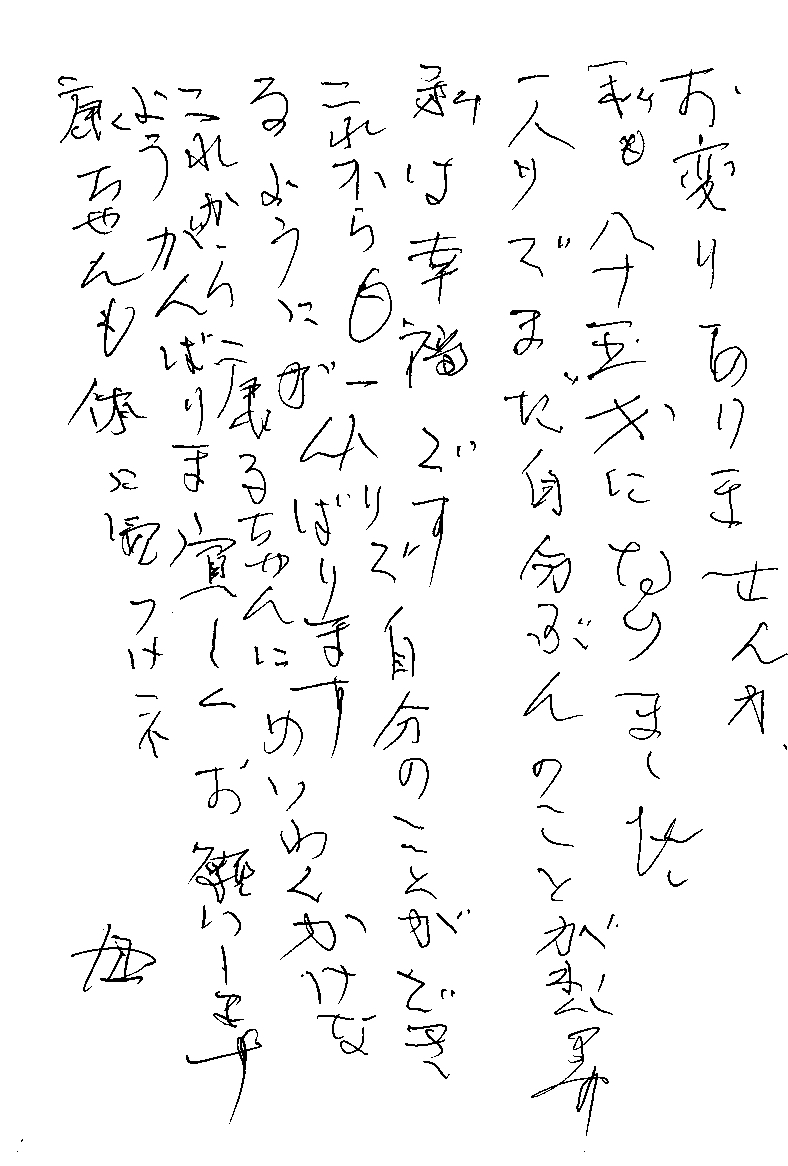 お変りありませんか、
私も八十五才になりました
一人りでまだ自分ぶんのことが出来ます
私は幸福です
これからも一人りで自分のことができ
るようにがんばります
これからも展るちゃんにめいわくかけな
ようがんばります宜しくお願いします
康くちゃんも体に気つけネ
母